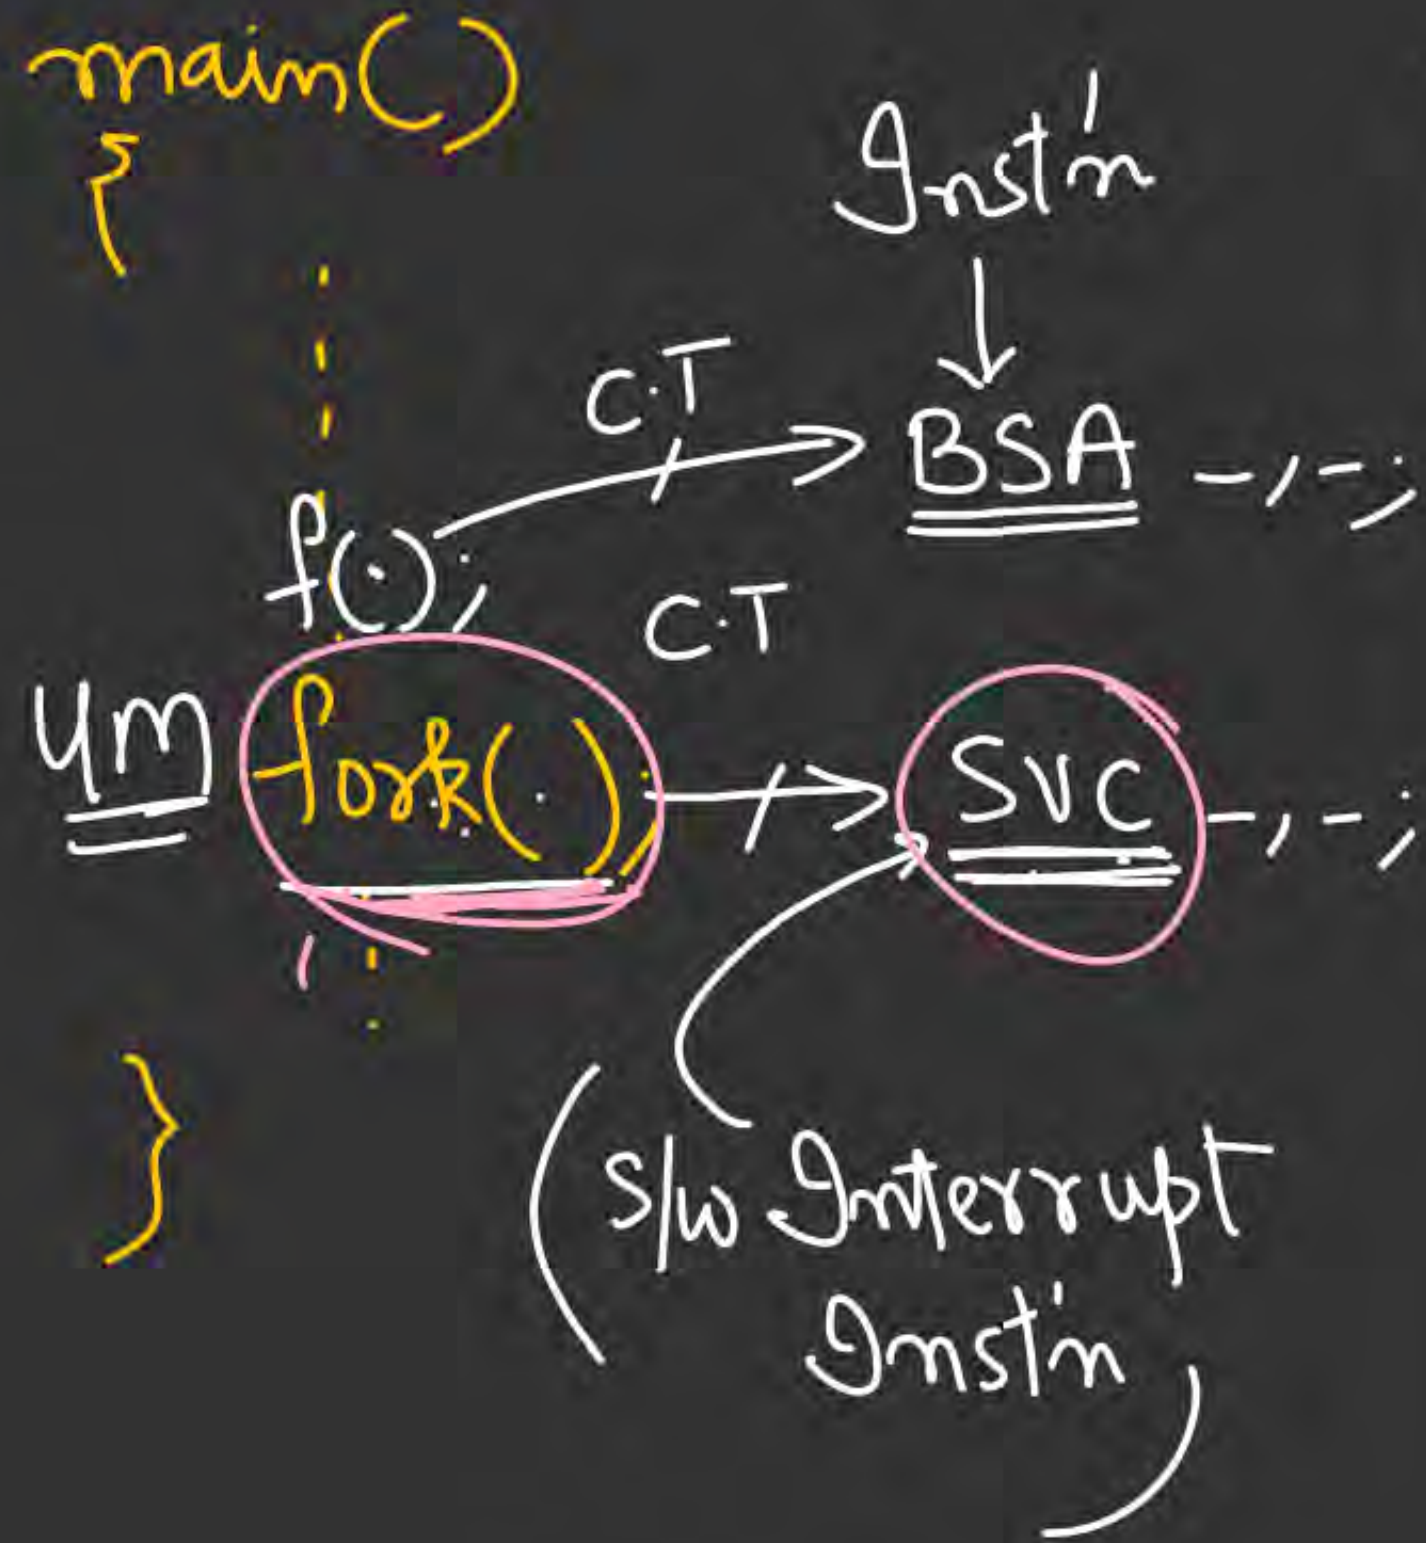 main()
{
Inst'n
C.T
BSA -,-;
f(.);
C.T
UM fork(.); SVC -,-;
}
(S/w Interrupt
Inst'n)